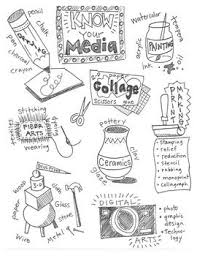 pencil
chalk
pen
charcoal
crayon
KNOW
your
MEDIA
Watercolor
tempera
oil
acrylic
ink
PAINTING
Collage
scissors
glue
Stitching
FIBER
ARTS
weaving
pottery
clay
Ceramics
glaze
PRINT
MAKING
stamping
relief
reduction
stencil
rubbing
monoprint
Collagraph
paper
wood
Wire
Metal
Glass
Stone
DIGITAL
ARTS
photo
graphic
design
Techno-
logy